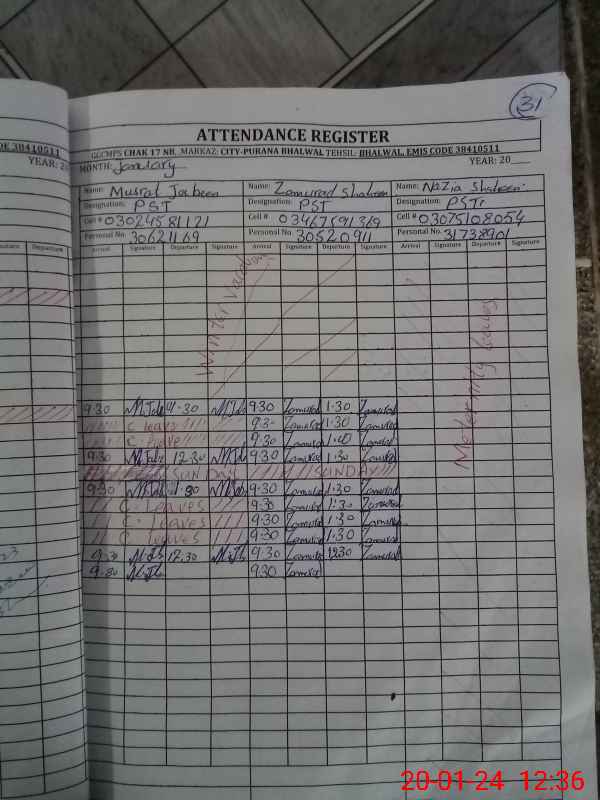 31
ATTENDANCE REGISTER
GGCMPS CHAK 17 NB. MARKAZ: CITY-PURANA BHALWAL TEHSIL: BHALWAL, EMIS CODE 38410511
DE 38410511
YEAR: 2
MONTH: January YEAR: 20
Name: Musrat Jabeen Name: Zamurad Shaheen Name: Nazia Shaheen
Designation: PST Designation: PST Designation: PST
Cell # 03024581121 Cell # 03467591369 Cell # 03075108054
Personal No. 30621169 Personal No. 30520911 Personal No. 31738901
Departure Arrival Signature Departure Signature Arrival Signature Departure Signature Arrival Signature Departure Signature
Winter
Leaves
9:30 1:30 9:30 Zamurad 1:30 Zamurad
C leave 9:30 Zamurad 1:30 Zamurad
C. leave 9:30 Zamurad Zamurad
9:30 12:30 9:30 Zamurad 1:30 Zamurad
SUNDAY SUNDAY
9:30 1:30 9:30 Zamurad 1:30 Zamurad
C. Leaves 9:30 Zamurad 1:30 Zamurad
C. leaves 9:30 Zamurad 1:30 Zamurad
C leaves 9:30 Zamurad 1:30 Zamurad
9:30 12:30 9:30 Zamurad 12:30 Zamurad
9:30 9:30 Zamurad
20-01-24 12:36